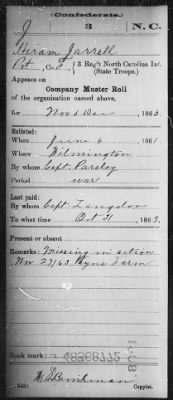 Confederate.
J 3 N.C.
Hiram Jarrell
Pvt, Co. J, 3 Reg't North Carolina Inf.
(State Troops.)
Appears on
Company Muster Roll
of the organization named above,
for Nov & Dec, 1863.
Enlisted:
When June 6, 1861.
Where Wilmington
By whom Capt. Parsley
Period war
Last paid:
By whom Capt. Langdon
To what time Oct 31, 1863.
Present or absent
Remarks: Missing in action
Nov 27/63 Pynes Farm
Book mark:
48568772
(642)
Copyist.